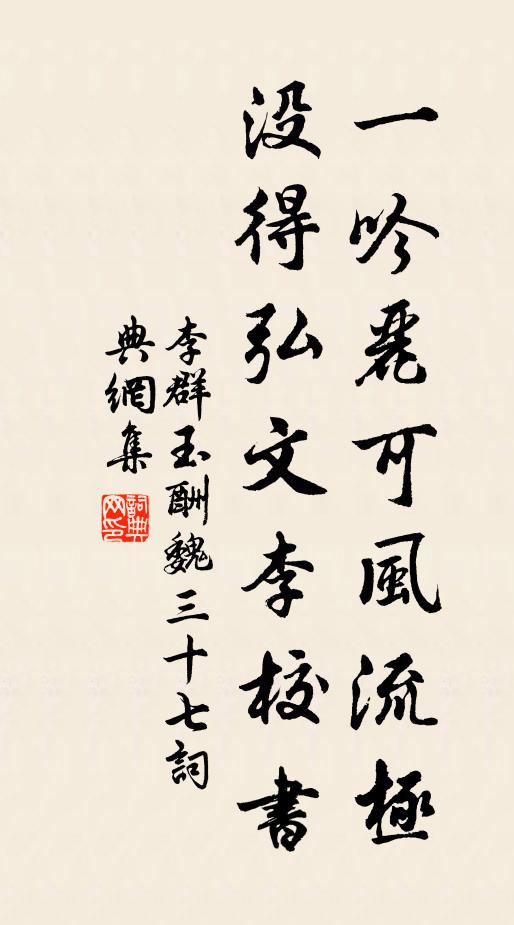 一吟麗可風流極
没得弘文李校書
李群玉酬魏三十七詞
典網集
詞典網印